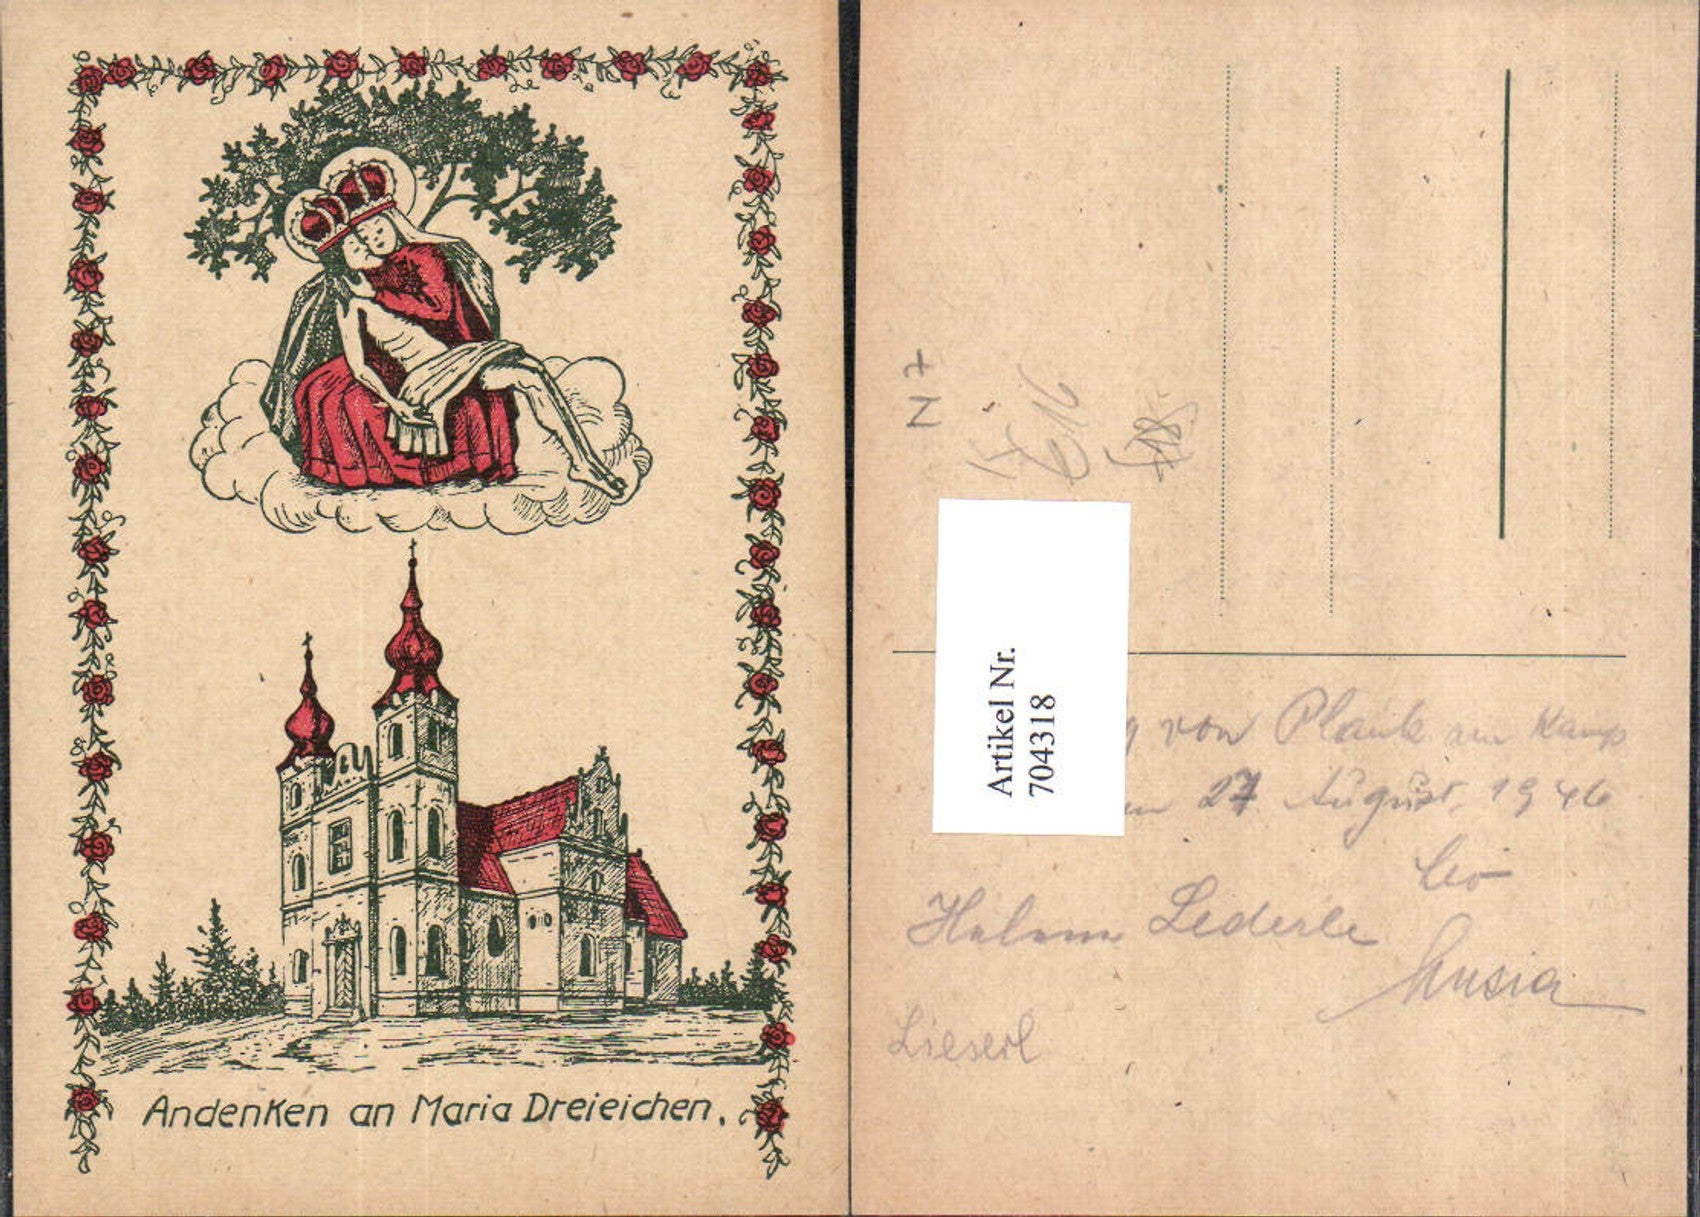 Andenken an Maria Dreieichen.
N 7
Artikel Nr.
704318
von Plank am Kamp
27 August. 1946
Leo
Lederle
Lieserl